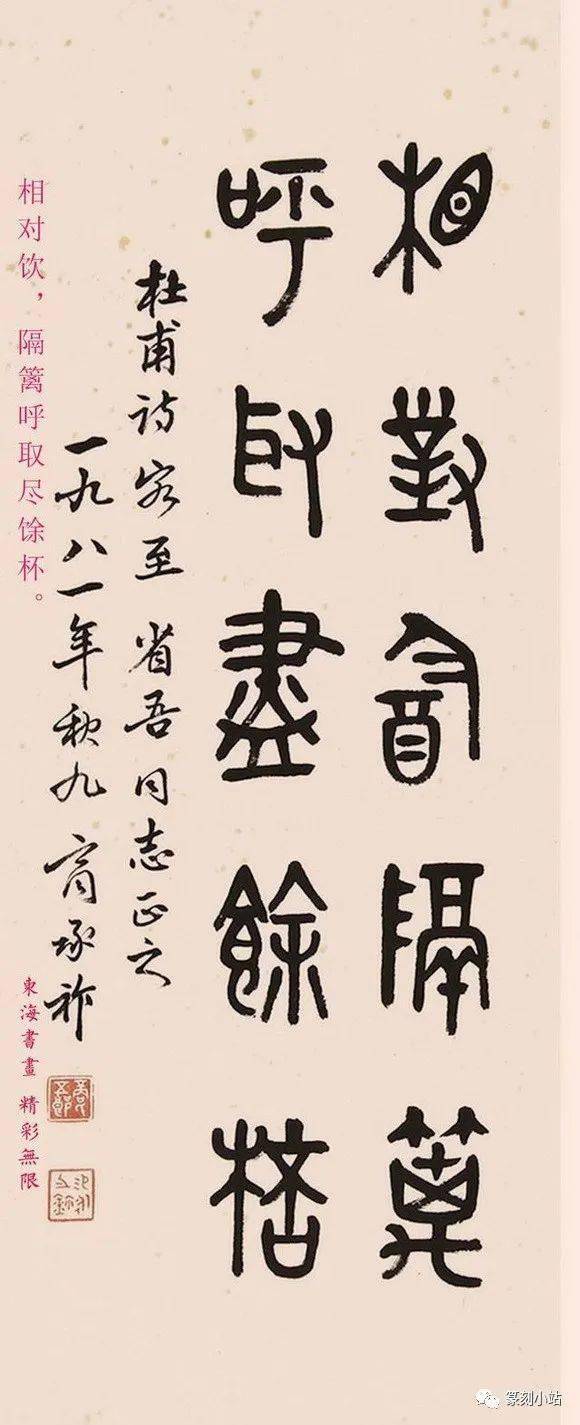 相對酓隔篱
呼取盡餘桮
杜甫诗客至 省吾同志正之
一九八一年秋九 商承祚
相对饮，隔篱呼取尽馀杯。
東海書畫 精彩無限
篆刻小站